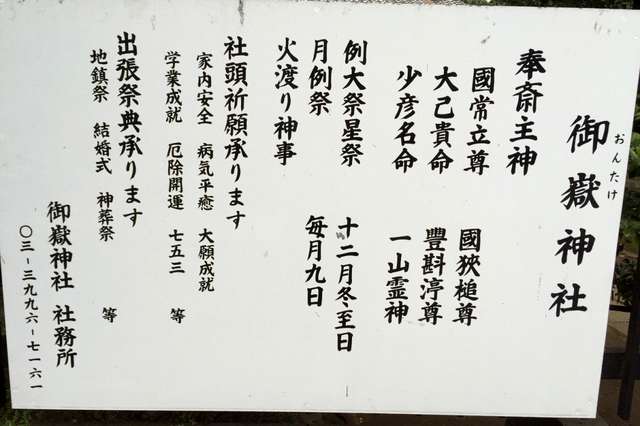 御嶽神社
おんたけ
奉斎主神
國常立尊 國狹槌尊
大己貴命 豊斟渟尊
少彦名命 一山霊神
例大祭星祭 十二月冬至日
月例祭 毎月九日
火渡り神事
社頭祈願承ります
家内安全 病気平癒 大願成就
学業成就 厄除開運 七五三 等
出張祭典承ります
地鎮祭 結婚式 神葬祭 等
御嶽神社 社務所
〇三-三九九六-七一六一